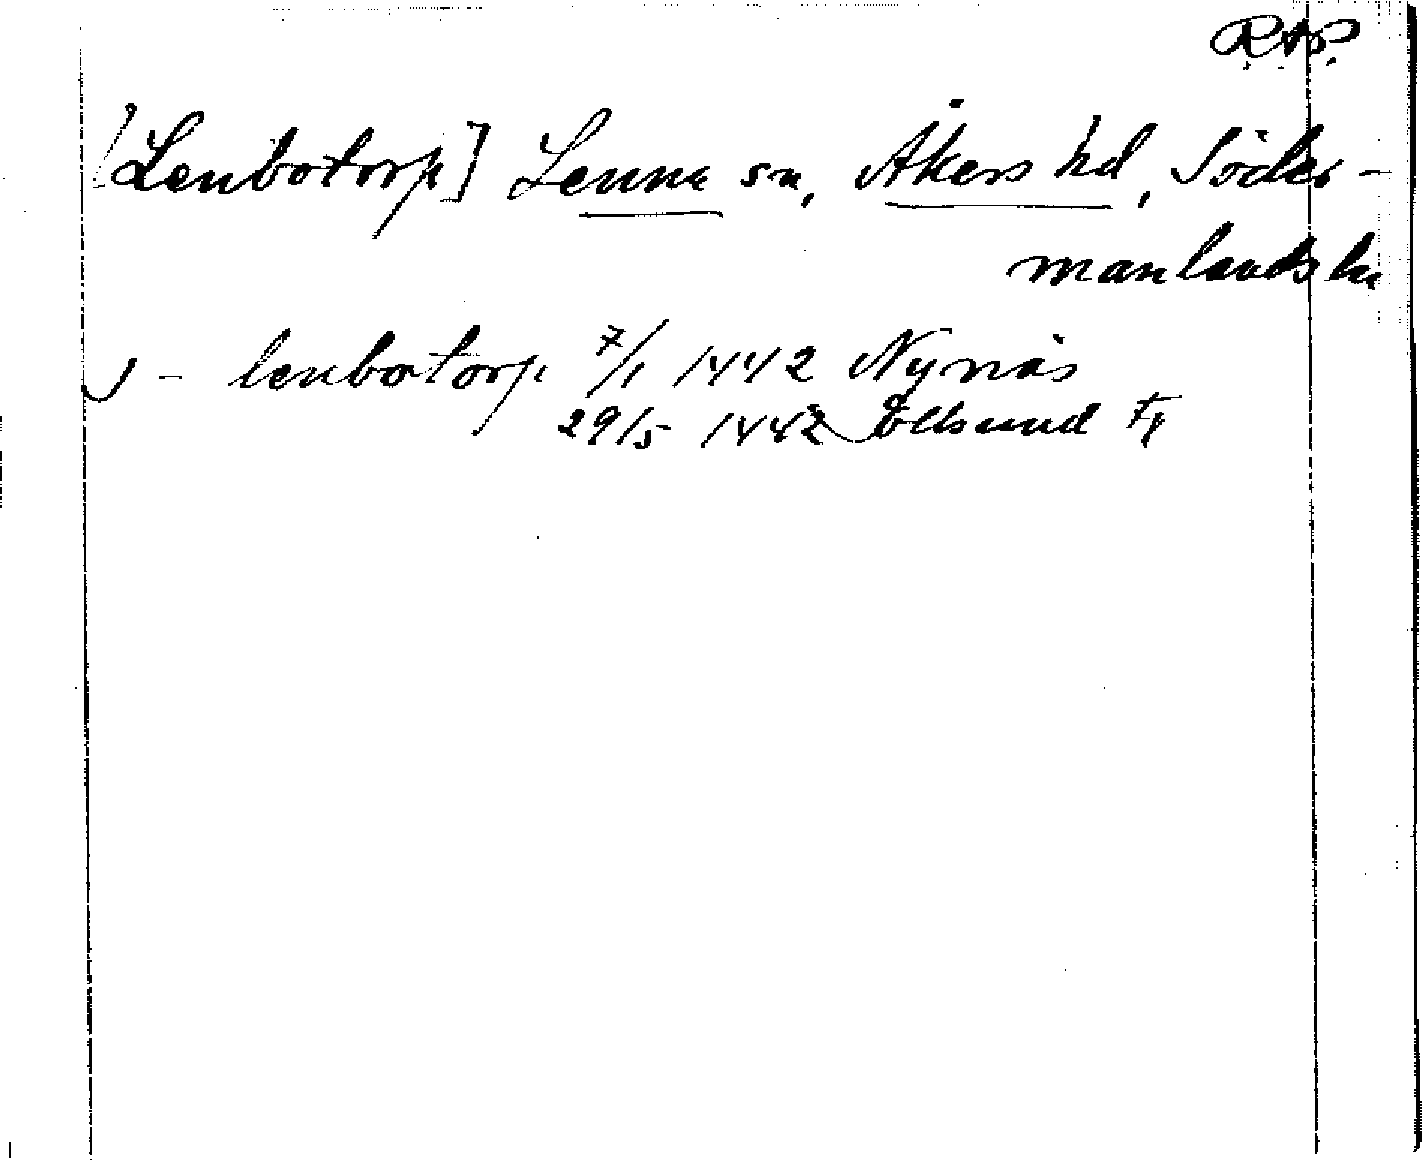 RAP.
[Lenbotorp] Lenna sn, Åkers hd, Söder-
manlands ln
J - lenbotorp 7/1 1442 Nynäs
29/5 1442